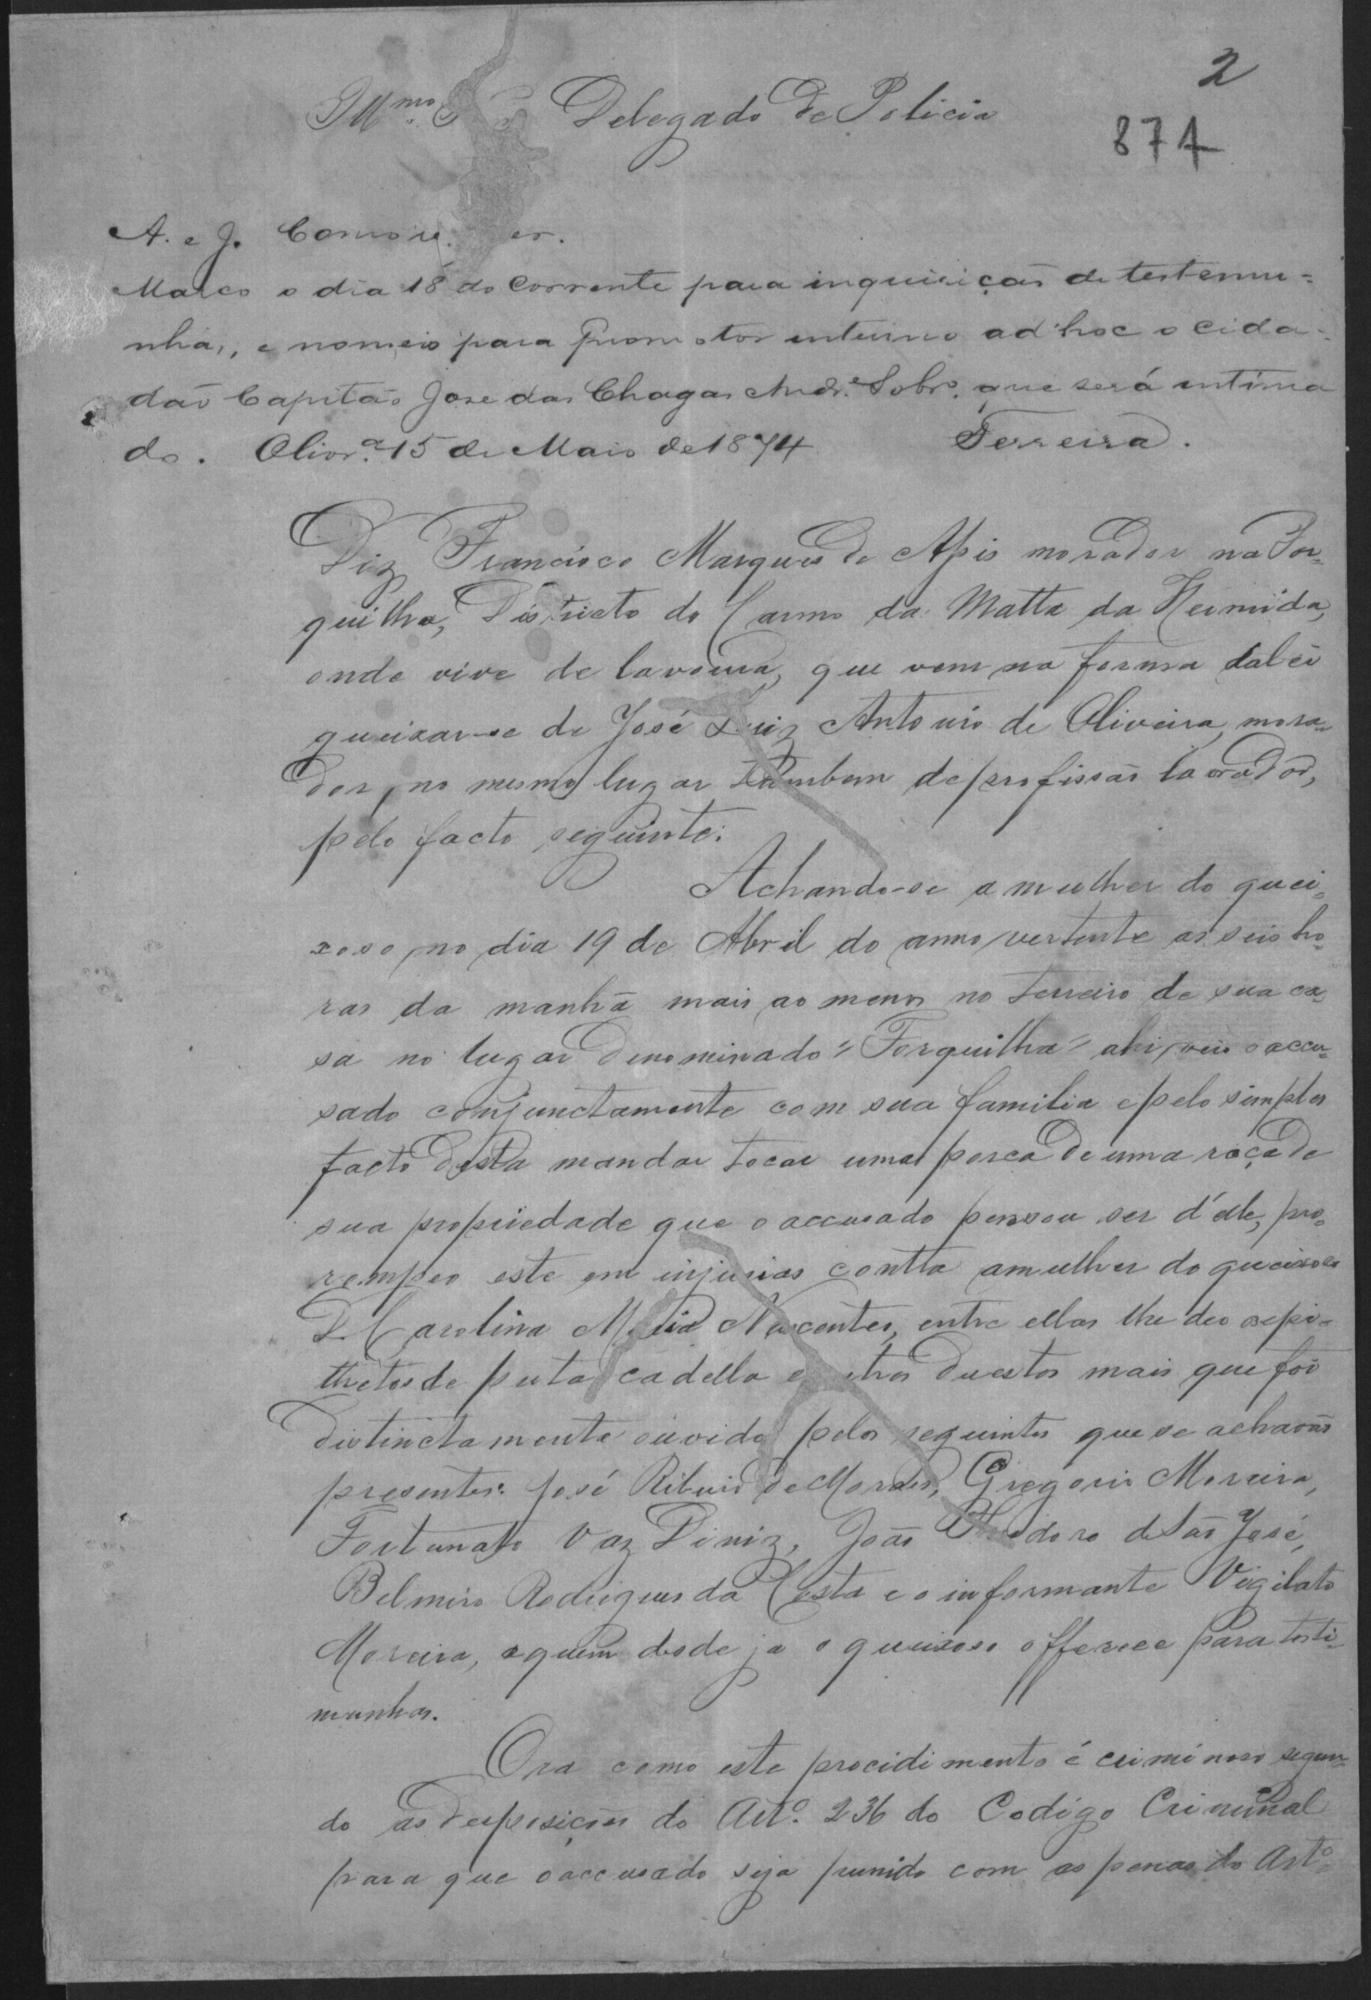 2
Illmo. Delegado de Policia
874
A. e J. Como re er.
Marco o dia 18 do Corrente para inquirição de testemu=
nhas, e nomeio para Promotor interino ad hoc o cida=
dão Capitão Jose das Chagas Andre. Sobro. que será intima
do. Olivra. 15 de Maio de 1874 Ferreira.
Diz Francisco Marques de Assis morador na For-
quilha, Districto do Carmo da Matta da Hermida,
onde vive de lavoura, que vem na forma da lei
queixar-se de José Luiz Antonio de Oliveira, mora-
dor, no mesmo lugar tambem de profissão lavrador,
pelo facto seguinte:
Achando-se a mulher do quei-
xoso, no dia 19 de Abril do anno vertente as seis ho-
ras da manhã mais ao menos no terreiro de sua ca-
sa no lugar denominado "Forquilha" ahi veio o accu-
sado conjunctamente com sua familia e pelo simples
facto desta mandar tocar uma porca de uma roça de
sua propriedade que o accusado pensou ser d'elle, pro-
rompeo este em injurias contra a mulher do queixoso
D. Carolina Maria Nascentes, entre ellas lhe deo os epi-
thetos de puta cadella e outros duestos mais que foi
distinctamente ouvido pelos seguintes que se achavão
presentes: José Ribeiro de Moraes, Gregorio Moreira,
Fortunato Vaz Diniz, João Theodoro de São José,
Belmiro Rodrigues da Costa e o informante Vigilato
Moreira, a quem desde ja o queixoso offerece para testi-
munhas.
Ora como este procidimento é criminoso segun-
do as desposições do Arto. 236 do Codigo Criminal
para que o accusado seja punido com as penas do Arto.